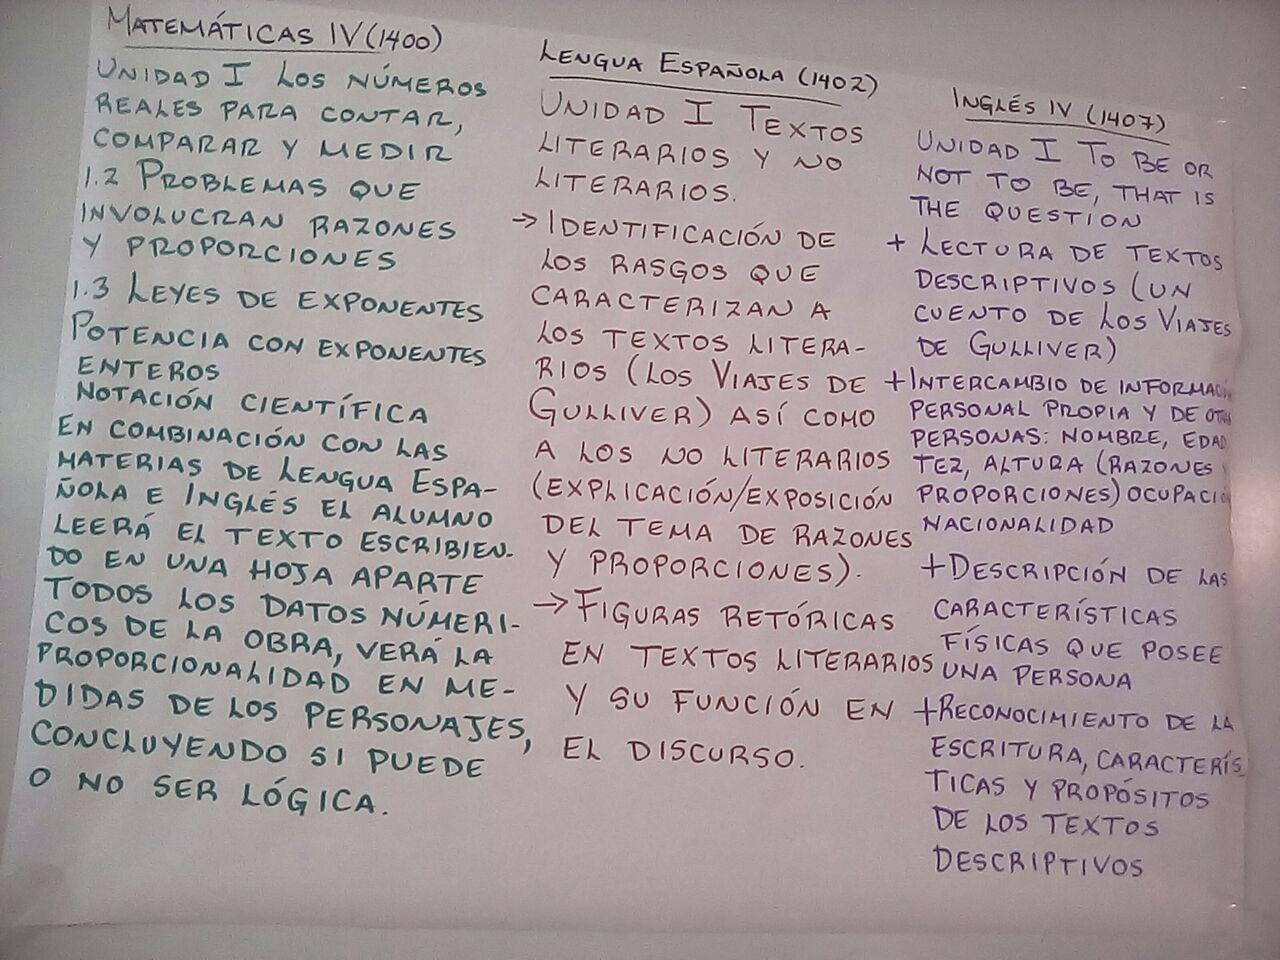 MATEMÁTICAS IV (1400)
UNIDAD I LOS NÚMEROS
REALES PARA CONTAR,
COMPARAR Y MEDIR
1.2 PROBLEMAS QUE
INVOLUCRAN RAZONES
Y PROPORCIONES
1.3 LEYES DE EXPONENTES
POTENCIA CON EXPONENTES
ENTEROS
NOTACIÓN CIENTÍFICA
EN COMBINACIÓN CON LAS
MATERIAS DE LENGUA ESPA-
ÑOLA E INGLÉS EL ALUMNO
LEERÁ EL TEXTO ESCRIBIEN-
DO EN UNA HOJA APARTE
TODOS LOS DATOS NÚMERI-
COS DE LA OBRA, VERÁ LA
PROPORCIONALIDAD EN ME-
DIDAS DE LOS PERSONAJES,
CONCLUYENDO SI PUEDE
O NO SER LÓGICA.
LENGUA ESPAÑOLA (1402)
UNIDAD I TEXTOS
LITERARIOS Y NO
LITERARIOS.
→ IDENTIFICACIÓN DE
LOS RASGOS QUE
CARACTERIZAN A
LOS TEXTOS LITERA-
RIOS (LOS VIAJES DE
GULLIVER) ASÍ COMO
A LOS NO LITERARIOS
(EXPLICACIÓN/EXPOSICIÓN
DEL TEMA DE RAZONES
Y PROPORCIONES).
→ FIGURAS RETÓRICAS
EN TEXTOS LITERARIOS
Y SU FUNCIÓN EN
EL DISCURSO.
INGLÉS IV (1407)
UNIDAD I TO BE OR
NOT TO BE, THAT IS
THE QUESTION
+ LECTURA DE TEXTOS
DESCRIPTIVOS (UN
CUENTO DE LOS VIAJES
DE GULLIVER)
+ INTERCAMBIO DE INFORMACIÓN
PERSONAL PROPIA Y DE OTRAS
PERSONAS: NOMBRE, EDAD
TEZ, ALTURA (RAZONES Y
PROPORCIONES) OCUPACIÓN
NACIONALIDAD
+ DESCRIPCIÓN DE LAS
CARACTERÍSTICAS
FÍSICAS QUE POSEE
UNA PERSONA
+ RECONOCIMIENTO DE LA
ESCRITURA, CARACTERÍS
TICAS Y PROPÓSITOS
DE LOS TEXTOS
DESCRIPTIVOS